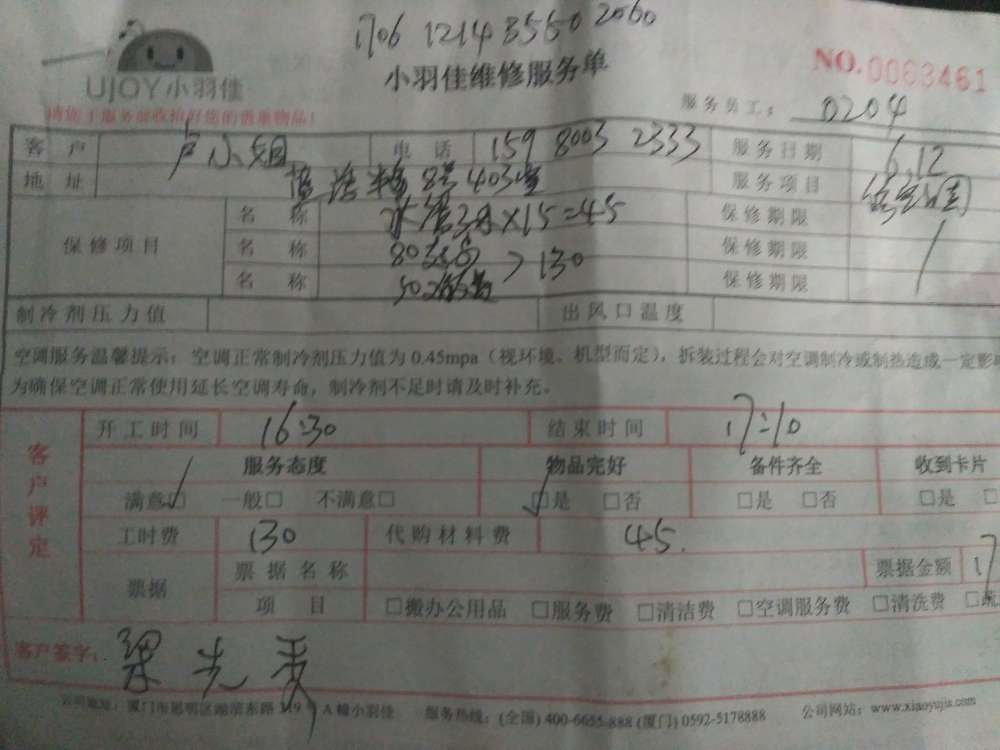 1706 1214 3550 2060
UJOY小羽佳
小羽佳维修服务单
NO.0063461
服务员工: 0204
客户 卢小姐 电话 159 8003 2333 服务日期 6.12
地址 8号403室 服务项目
保修项目
名称 ×15=45 保修期限
名称 >130 保修期限
名称 保修期限
制冷剂压力值 出风口温度
空调服务温馨提示:空调正常制冷剂压力值为0.45mpa(视环境、机型而定),拆装过程会对空调制冷或制热造成一定影
为确保空调正常使用延长空调寿命,制冷剂不足时请及时补充。
客户评定
开工时间 16:30 结束时间 17:10
服务态度 物品完好 备件齐全 收到卡片
满意☑ 一般□ 不满意□ ☑是 □否 □是 □否 □是
工时费 130 代购材料费 45.
票据 票据名称 票据金额 17
项目 □搬办公用品 □服务费 □清洁费 □空调服务费 □清洗费
客户签字:
公司地址:厦门市思明区湖滨东路 A幢小羽佳 服务热线:(全国)400-6655-888 (厦门)0592-5178888 公司网站:www.xiaoyujia.com